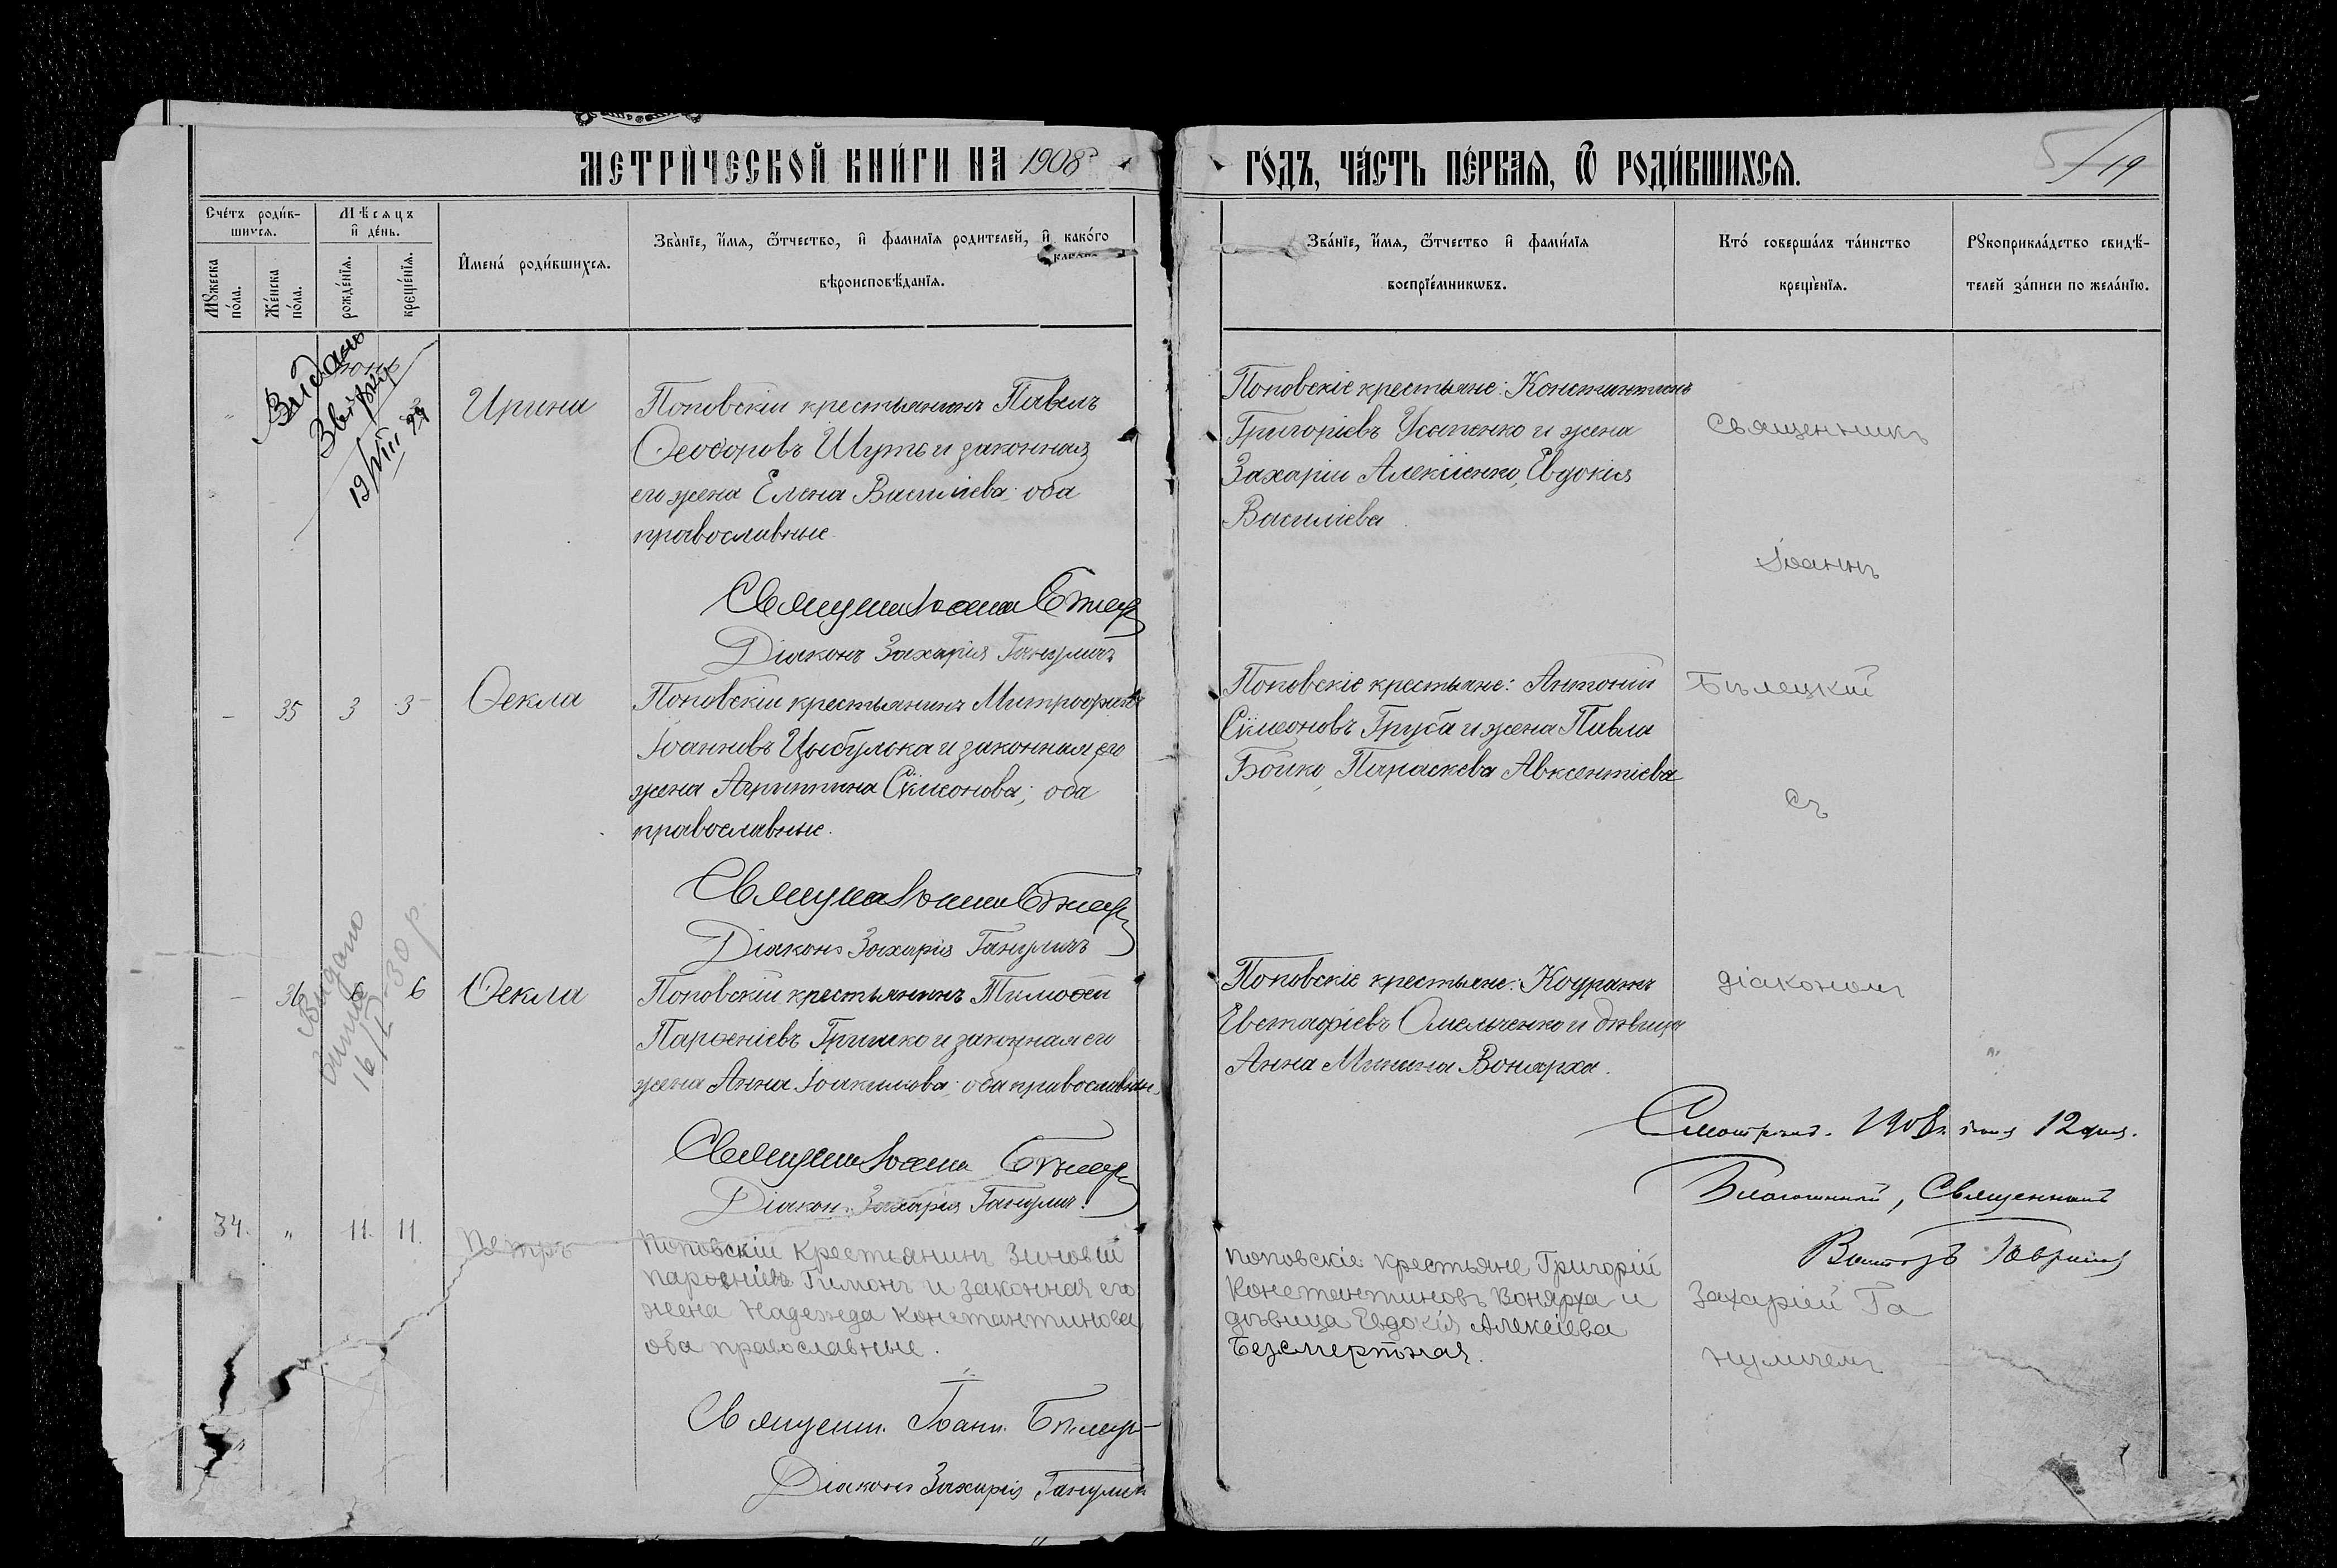 МЕТРИ́ЧЕСКОЙ КНИ́ГИ НА 1908
ГО́ДЪ, ЧА́СТЬ ПЕ́РВАЯ, Ѿ РОДИ́ВШИХСЯ.
19
Сче́тъ роди́в-
шихся.
Мѣсяцъ
и҆ де́нь.
Мꙋ́жеска по́ла.
Же́нска по́ла.
рожде́нїя.
креще́нїя.
И҆мена́ роди́вшихся.
Зва́нїе, и҆́мя, ѻ҆́тчество, и҆ фами́лїя роди́телей, и҆ како́го
вѣроисповѣ́данїя.
Зва́нїе, и҆́мя, ѻ҆́тчество и҆ фами́лїя
воспрїе́мникѡвъ.
Кто́ соверша́лъ та́инство
креще́нїя.
Рꙋкоприкла́дство свидѣ́-
телей за́писи по жела́нїю.
Видано
19/VIII
Ирина
Поповскій крестьянинъ Павелъ
Ѳеодоровъ Шуть и законная
его жена Елена Василіева; оба
православные.
Діаконъ Захарія Ганулич
Поповскіе крестьяне: Константинъ
Григоріевъ Усипенко и жена
Захаріи Алексіенко, Евдокія
Василіева
Священникъ
Іоаннъ
35 3 3
Ѳекла
Поповскій крестьянинъ Митрофанъ
Іоанновъ Цыбулька и законная его
жена Агриппина Сѵмеонова; оба
православные.
Діаконъ Захарія Ганулич
Поповскіе крестьяне: Антоній
Сѵмеоновъ Груба и жена Павла
Бойко, Параскева Авксентіева
Бѣлецкій
съ
Видано
16/V-30 р.
36 6 6
Ѳекла
Поповскій крестьянинъ Тимоѳей
Парѳеніевъ Гришко и законная его
жена Анна Іоакимова; оба православны.
Діакон. Захарія Ганулич.
Поповскіе крестьяне: Кодратъ
Евстафіевъ Омельченко и дѣвица
Анна Минина Вонярха.
діакономъ
1908 г. 12 дня.
Благочинный, Священникъ
34. " 11. 11.
Петръ
Поповскій крестьянинъ Зиновій
Парѳеніевъ Гимонъ и законная его
жена Надежда Константинова
оба православные.
Священ. Іоанн. Бѣлец
Діаконъ Захарія Ганулич
Поповскіе крестьяне Григорій
Константиновъ Вонярха и
дѣвица Евдокія Алексіева
Безсмертная.
Захаріей Га
нуличемъ